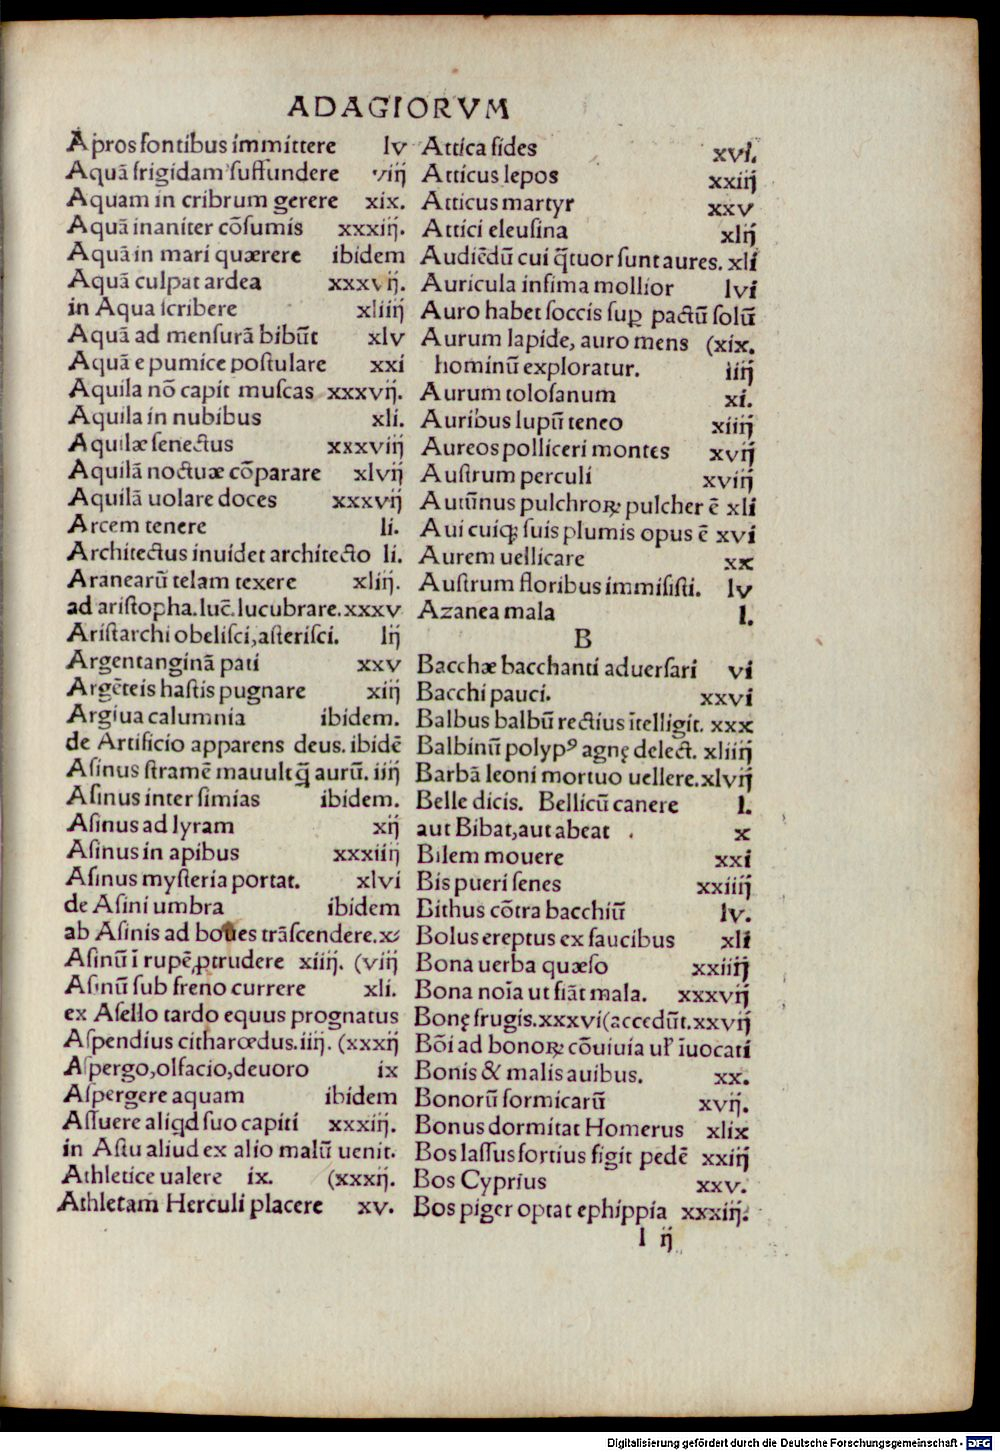 ADAGIORVM
Apros fontibus immittere lv
Aquā frigidam suffundere viij
Aquam in cribrum gerere xix.
Aquā inaniter cōsumis xxxiij.
Aquā in mari quærere ibidem
Aquā culpat ardea xxxvij.
in Aqua scribere xliiij
Aquā ad mensurā bibūt xlv
Aquā e pumice postulare xxi
Aquila nō capit muscas xxxvij.
Aquila in nubibus xli.
Aquilæ senectus xxxviij
Aquilā noctuæ cōparare xlvij
Aquilā uolare doces xxxvij
Arcem tenere li.
Architectus inuidet architecto li.
Aranearū telam texere xliij.
ad aristopha. luc̄. lucubrare. xxxv
Aristarchi obelisci, asterisci. lij
Argentanginā pati xxv
Argēteis hastis pugnare xiij
Argiua calumnia ibidem.
de Artificio apparens deus. ibidē
Asinus stramē mauult q̄ aurū. iiij
Asinus inter simias ibidem.
Asinus ad lyram xij
Asinus in apibus xxxiiij
Asinus mysteria portat. xlvi
de Asini umbra ibidem
ab Asinis ad boues trāscendere. x
Asinū ī rupē ꝓtrudere xiiij. (viij
Asinū sub freno currere xli.
ex Asello tardo equus prognatus
Aspendius citharœdus. iiij. (xxxij
Aspergo, olfacio, deuoro ix
Aspergere aquam ibidem
Assuere aliqd suo capiti xxxiij.
in Astu aliud ex alio malū uenit.
Athletice ualere ix. (xxxij.
Athletam Herculi placere xv.
Attica fides xvi.
Atticus lepos xxiij
Atticus martyr xxv
Attici eleusina xlij
Audiēdū cui q̄tuor sunt aures. xli
Auricula infima mollior lvi
Auro habet soccis suꝑ pactū solū
Aurum lapide, auro mens (xix.
hominū exploratur. iiij
Aurum tolosanum xi.
Auribus lupū teneo xiiij
Aureos polliceri montes xvij
Austrum perculi xviij
Autūnus pulchroꝝ pulcher ē xli
Aui cuiqꝫ suis plumis opus ē xvi
Aurem uellicare xx
Austrum floribus immisisti. lv
Azanea mala l.
B
Bacchæ bacchanti aduersari vi
Bacchi pauci. xxvi
Balbus balbū rectius ītelligit. xxx
Balbinū polypꝰ agnę delect. xliiij
Barbā leoni mortuo uellere. xlvij
Belle dicis. Bellicū canere l.
aut Bibat, aut abeat x
Bilem mouere xxi
Bis pueri senes xxiiij
Bithus cōtra bacchiū lv.
Bolus ereptus ex faucibus xli
Bona uerba quæso xxiiij
Bona noīa ut fiāt mala. xxxvij
Bonę frugis. xxxvi (accedūt. xxvij
Bōi ad bonoꝝ cōuiuia ul' īuocati
Bonis & malis auibus. xx.
Bonorū formicarū xvij.
Bonus dormitat Homerus xlix
Bos lassus fortius figit pedē xxiij
Bos Cyprius xxv.
Bos piger optat ephippia xxxiij.
l ij
Digitalisierung gefördert durch die Deutsche Forschungsgemeinschaft - DFG